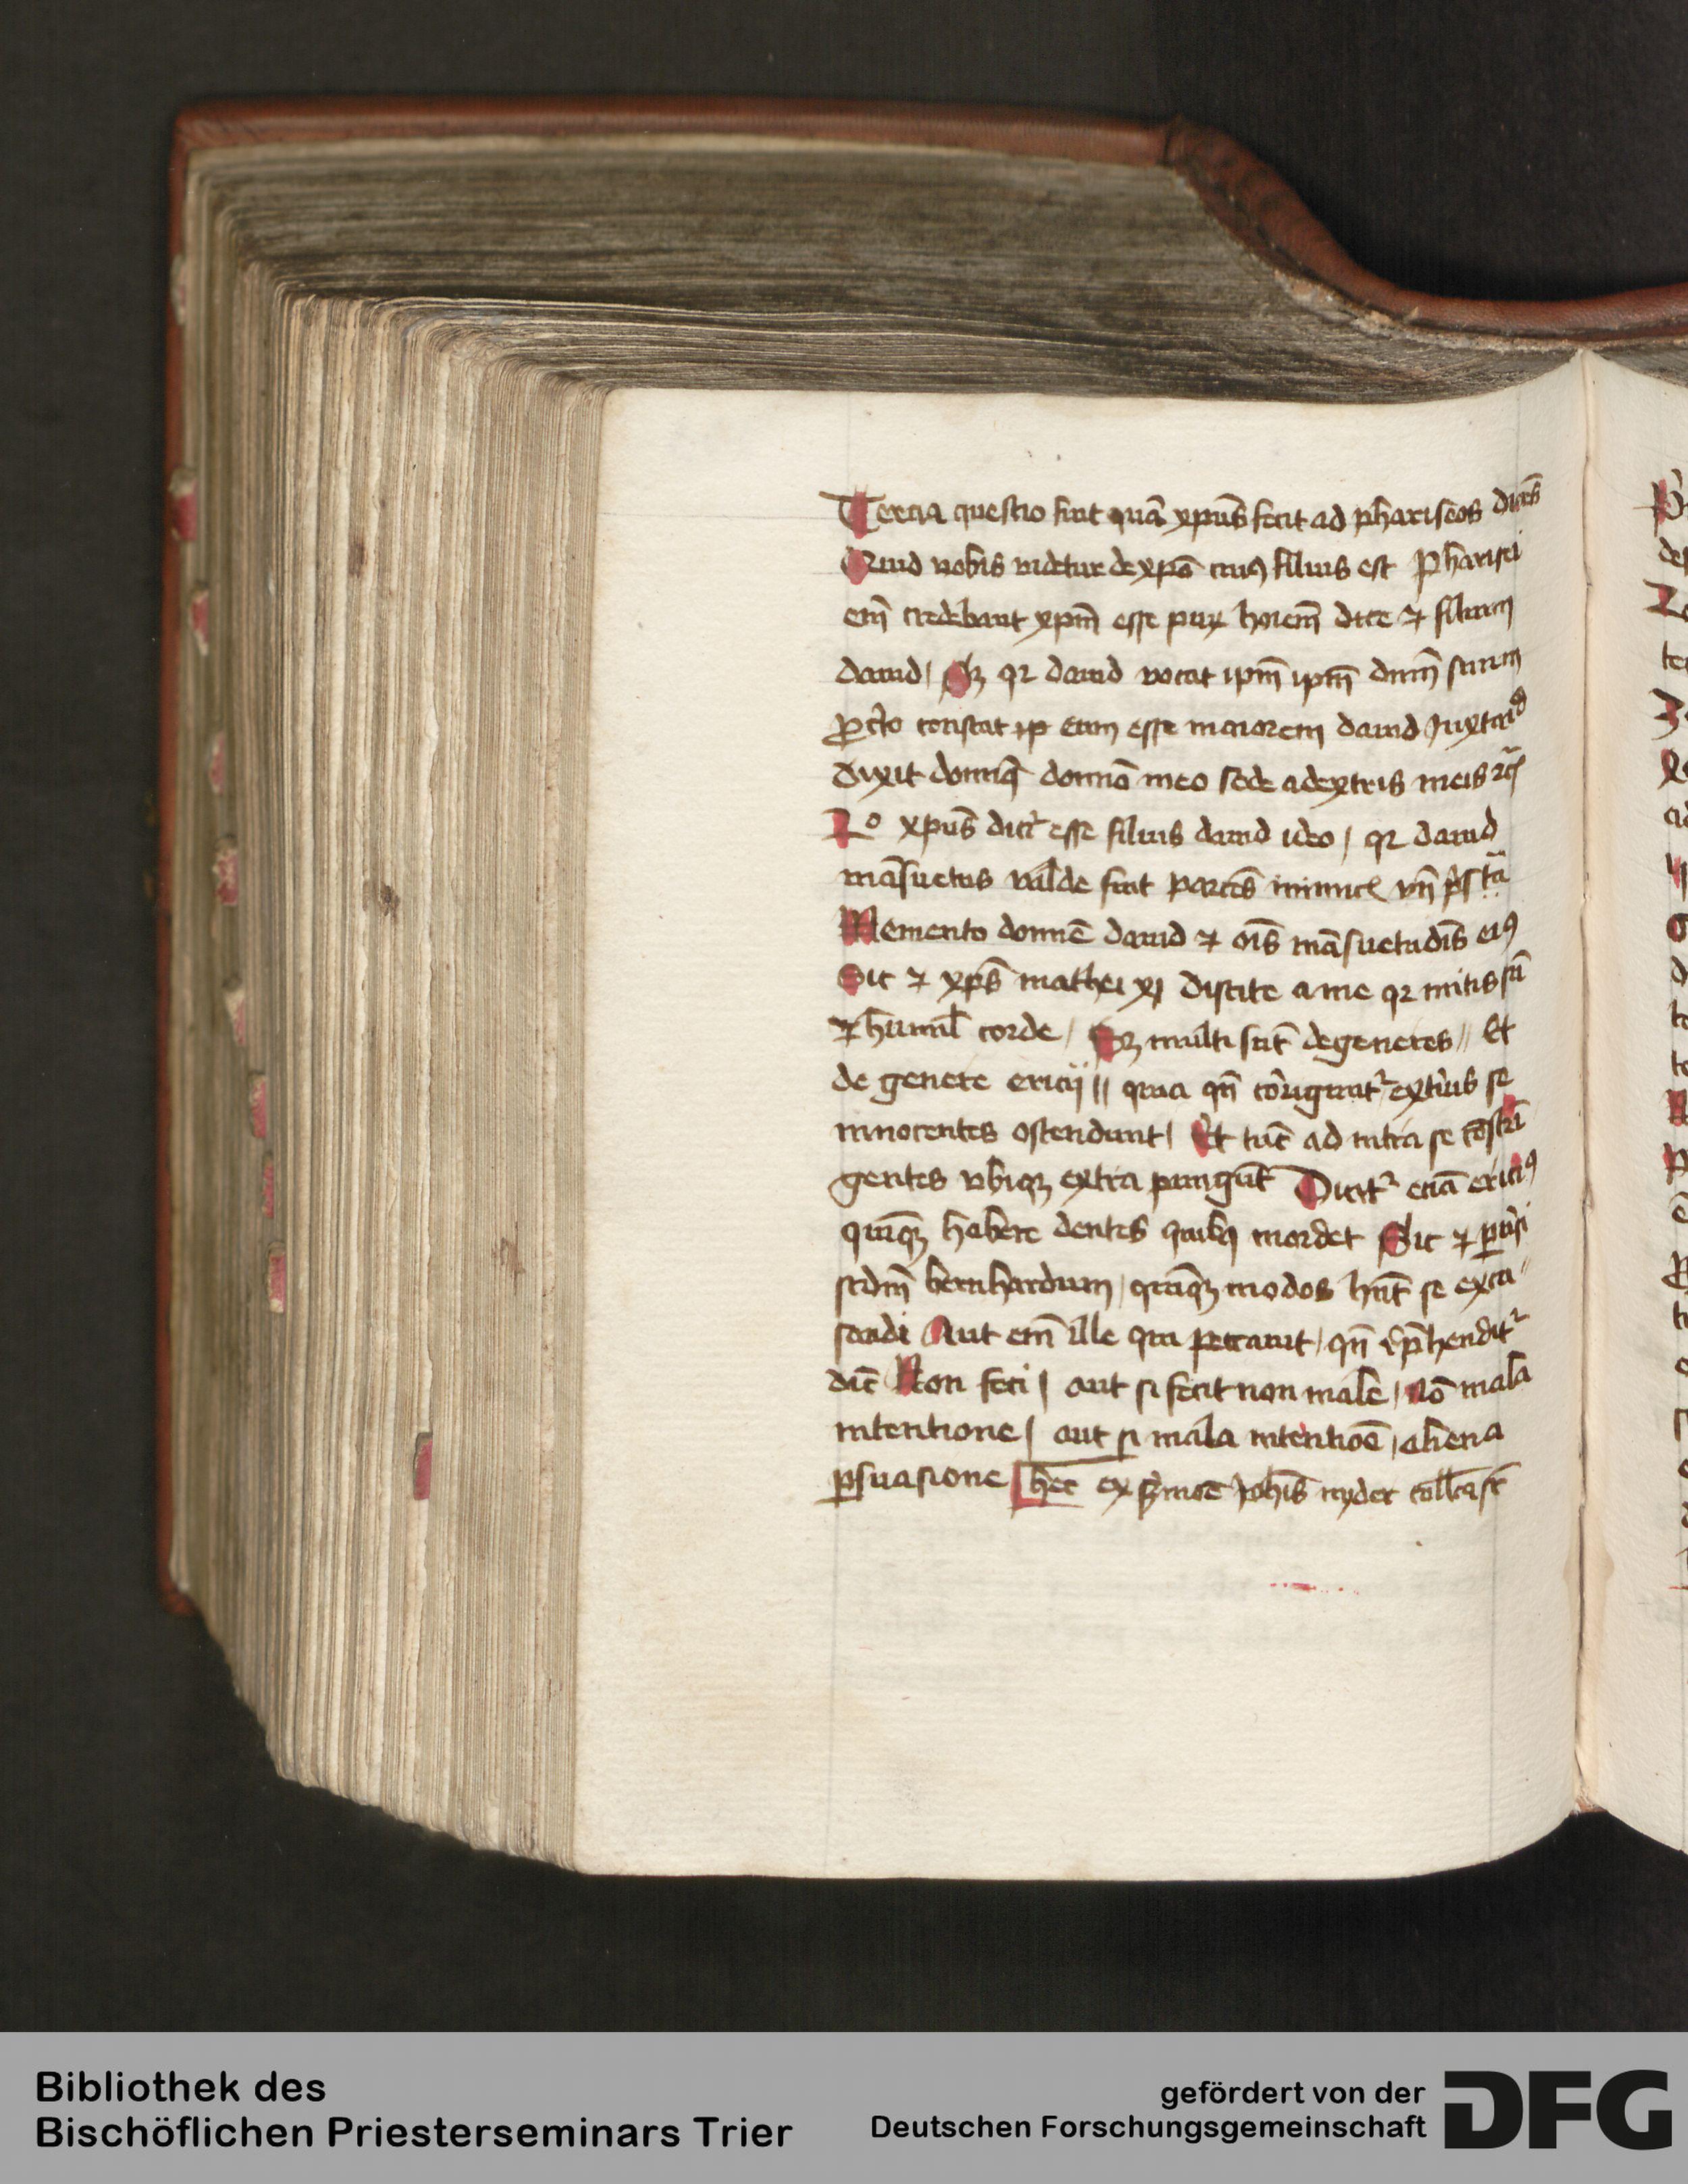 Tercia questio fuit quā xpūs fecit ad phariseos dicēs
Quid vobis videtur de xpō cuiꝯ filius est Pharisei
em̄ credebant xpm̄ esse puꝝ hoīem̄ dicē ⁊ filium
dauid / Sꝫ qꝛ dauid vocat ipm̄ ipm̄ dnm̄ suum
constat eum esse maiorem dauid Juxta id
dixit domnꝰ domnō meo sede a dextris meis ⁊cͣ
xpūs dicit᷑ esse filius dauid ideo / qꝛ dauid
māsuetus valde fuit parcēs inimicꝭ vn̄
Memento domnē dauid ⁊ oīs māsuetudīs eiꝯ
Sic ⁊ xpūs mathei xj discite a me qꝛ mitis sū
⁊ humil̄ corde / Sꝫ multi sūt degeneres // Et
de genere ericij // quia qn̄ cōrigūnt᷑ exterius se
innocentes ostendunt / Et tūc ad intra se cōstrī
gentes vbiqꝫ extra pungūt Dicit᷑ eciā ericiꝯ
quīqꝫ habere dentes quibꝯ mordet Sic ⁊
scdm̄ bernhardum / qūiqꝫ modos hn̄t se excu
sandi Aut em̄ ille qui peccauit / qn̄ rep̄hendit᷑
dic̄ Non feci / aut si fecit non male / nō mala
intentione / aut si mala intentiōe / aliena
ꝑsuasione hec ex sermōe Johīs nyder coll̄ca sūt
Bibliothek des
Bischöflichen Priesterseminars Trier
gefördert von der
Deutschen Forschungsgemeinschaft
DFG